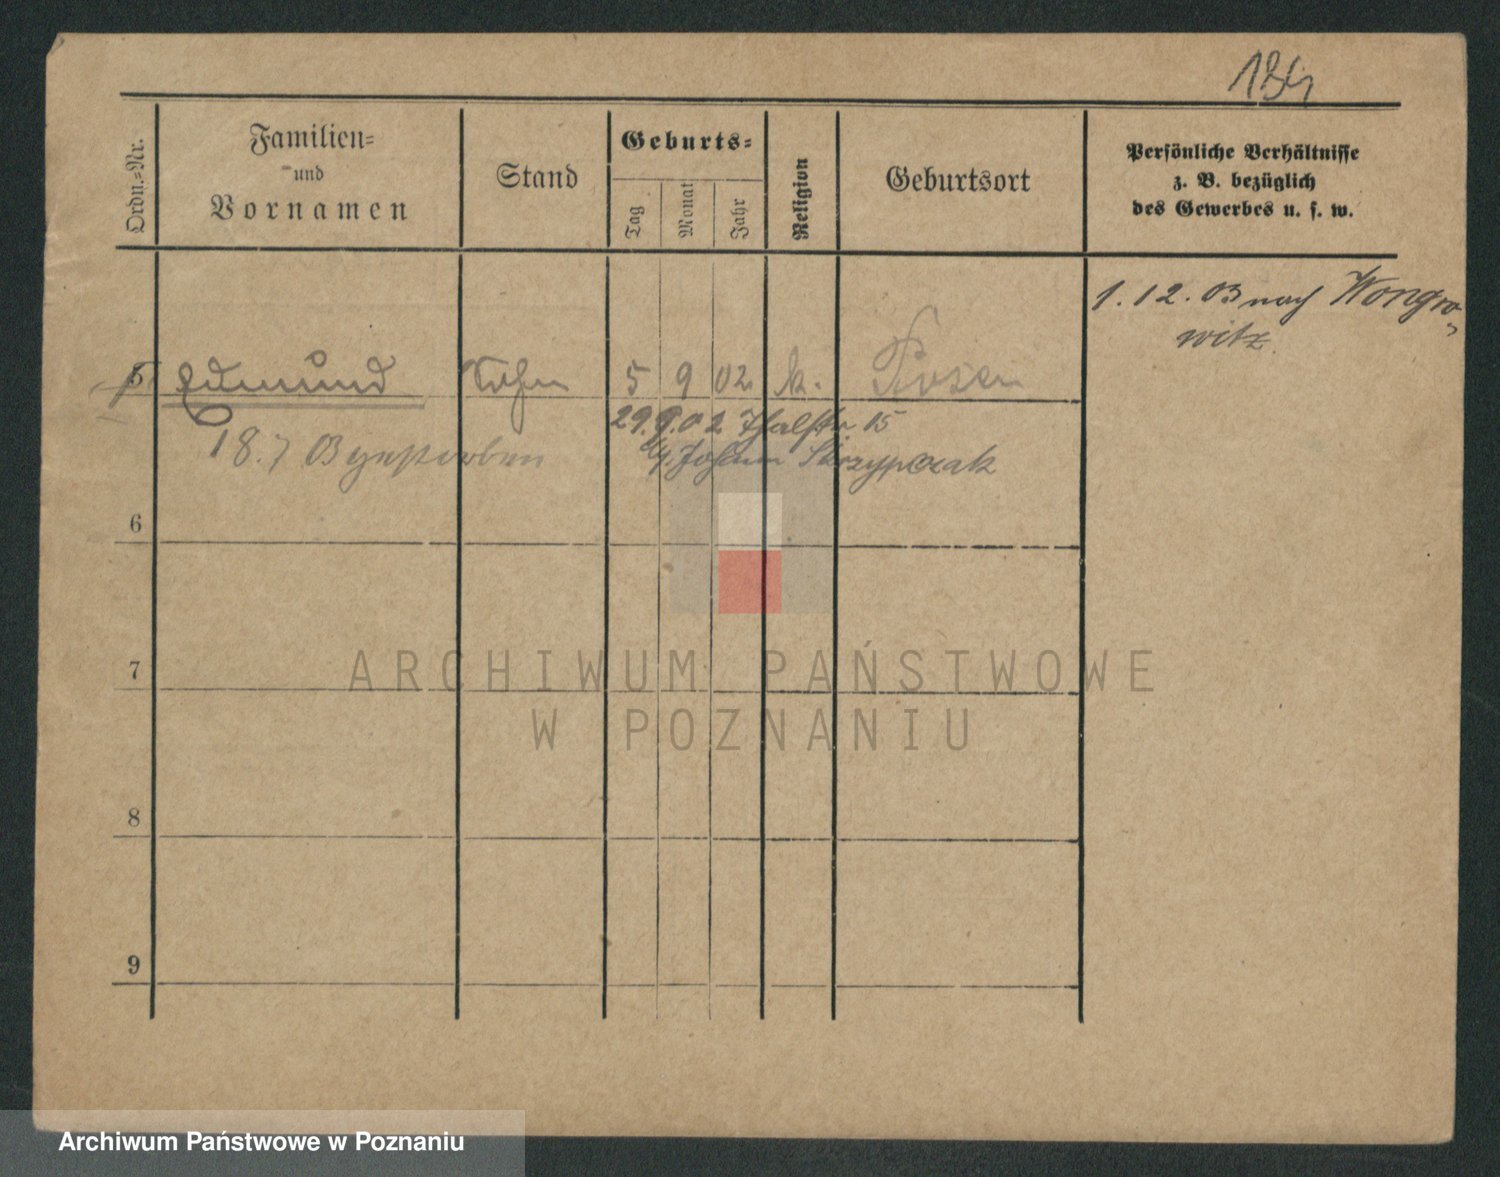 184
Ordn.-Nr.
Familien-
und
Vornamen
Stand
Geburts-
Tag
Monat
Jahr
Religion
Geburtsort
Persönliche Verhältnisse
z. B. bezüglich
des Gewerbes u. s. w.
1. 12. 03 nach Wongro-
witz.
5 Edmund Sohn 5 9 02 k. Posen
29.9.02 Thalstr 15
18.7 03 gestorben
Johann Skrzypczak
6
7
8
9
ARCHIWUM PAŃSTWOWE
W POZNANIU
Archiwum Państwowe w Poznaniu